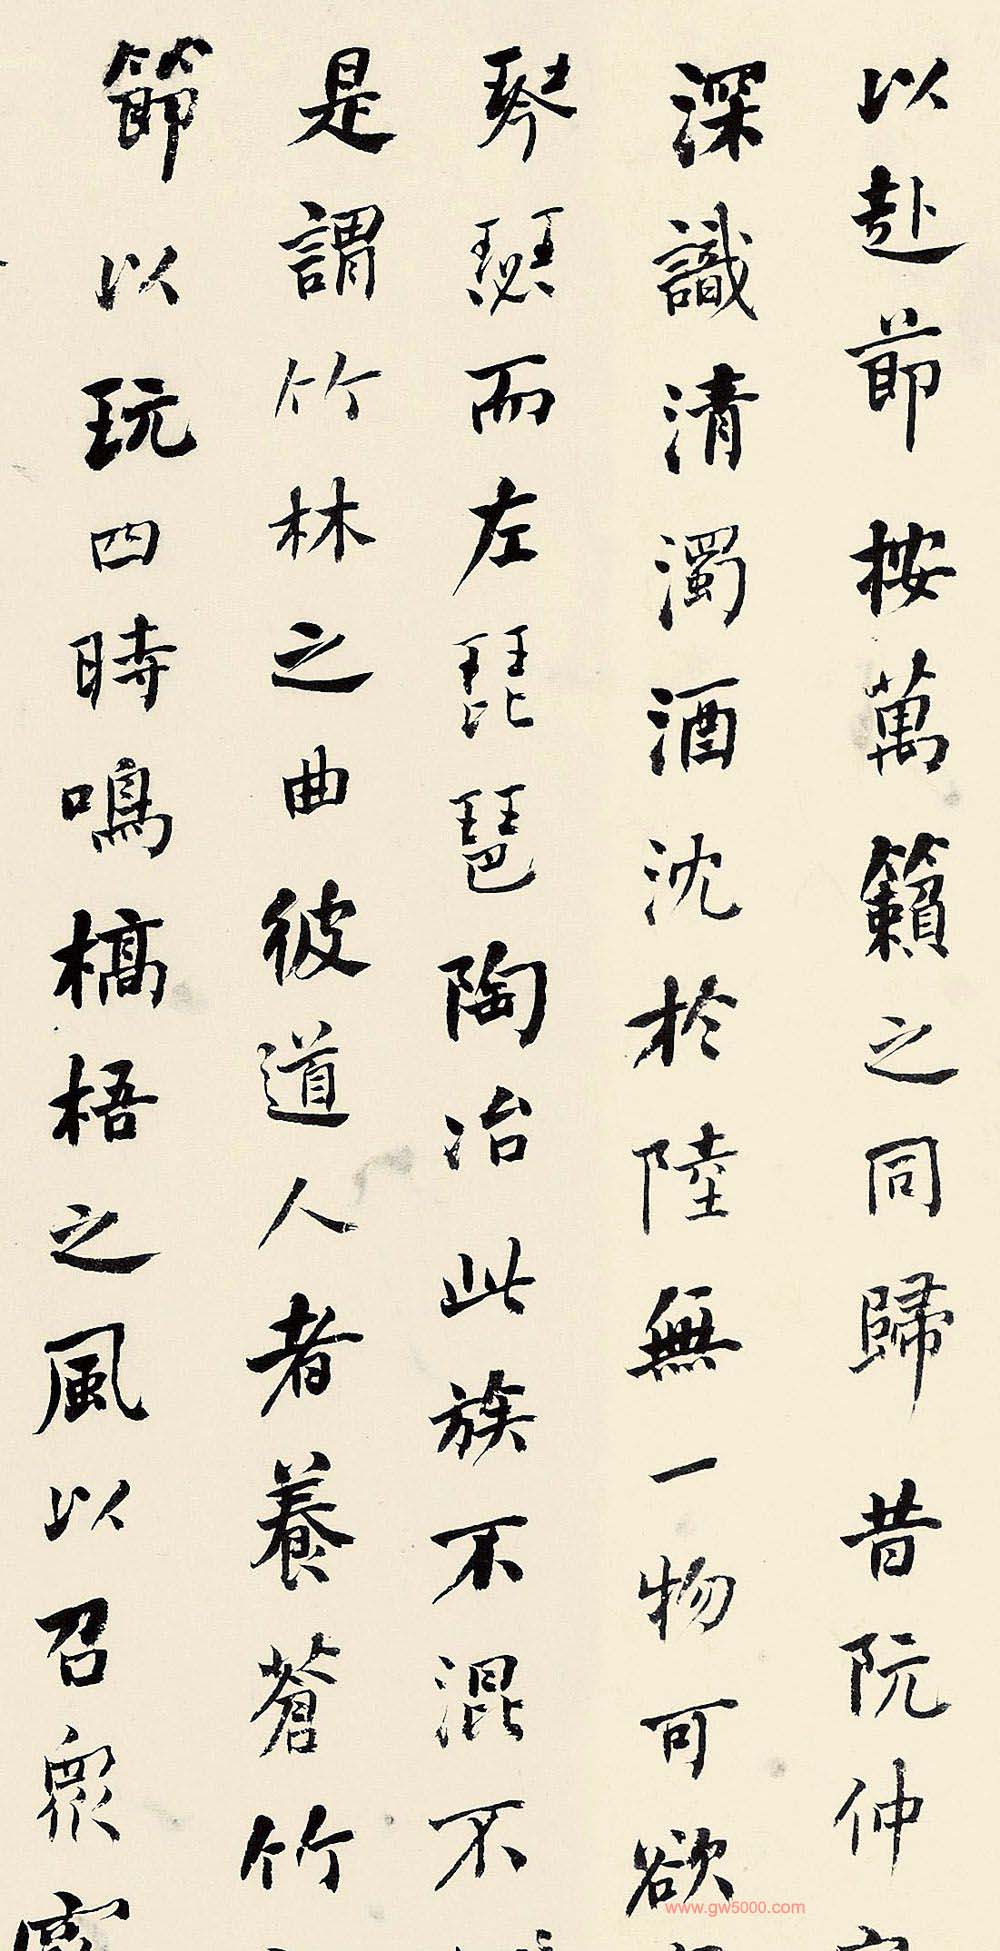 以赴節按萬籟之同歸昔阮仲
深識清濁酒沈於陸無一物可欲
琴瑟而左琵琶陶冶此族不混不
是謂竹林之曲彼道人者養蒼竹
節以玩四時鳴槁梧之風以召衆
www.gw5000.com